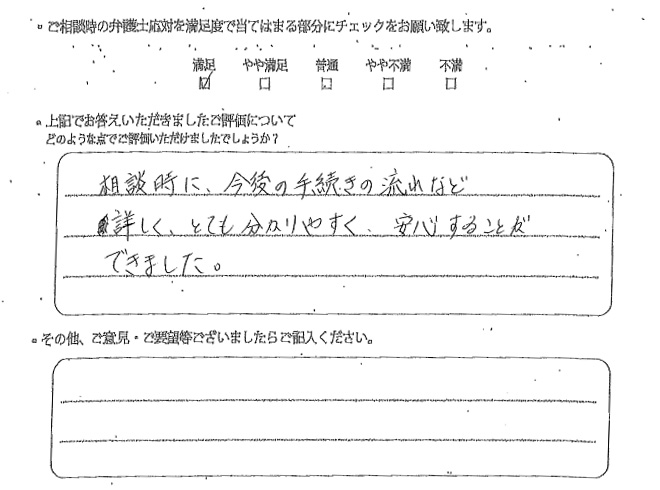 ・ご相談時の弁護士応対を満足度で当てはまる部分にチェックをお願い致します。
満足 やや満足 普通 やや不満 不満
☑ ☐ ☐ ☐ ☐
・上記でお答えいただきましたご評価について
どのような点でご評価いただけましたでしょうか？
相談時に、今後の手続きの流れなど
詳しく、とても分かりやすく、安心することが
できました。
・その他、ご意見・ご要望等ございましたらご記入ください。